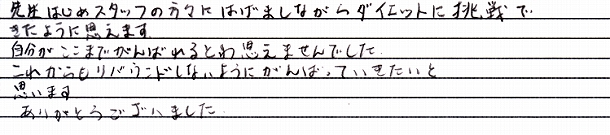 先生はじめスタッフの方々にはげましながらダイエットに挑戦で
きたように思えます
自分がここまでがんばれるとわ思えませんでした
これからもリバウンドしないようにがんばっていきたいと
思います
ありがとうございました